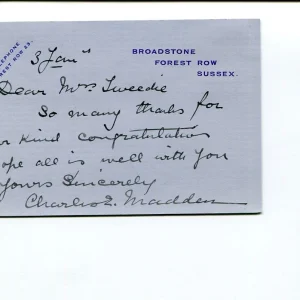 TELEPHONE
FOREST ROW 29.
BROADSTONE
FOREST ROW
SUSSEX.
3 Jany
Dear Mrs Tweedie
So many thanks for
kind congratulations
all is well with you
Yours Sincerely
Charles E. Madden